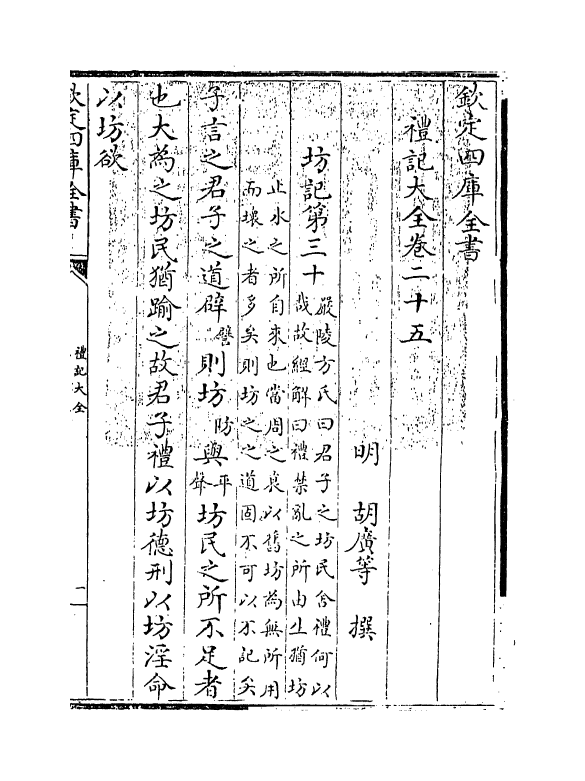 欽定四庫全書
禮記大全卷二十五
明 胡廣等 撰
坊記第三十
嚴陵方氏曰君子之坊民舍禮何以
哉故經解曰禮禁亂之所由生猶坊
止水之所自來也當周之衰以舊坊為無所用
而壞之者多矣則坊之之道固不可以不記矣
子言之君子之道辟譬則坊防與平聲坊民之所不足者
也大為之坊民猶踰之故君子禮以坊德刑以坊淫命
以坊欲
欽定四庫全書
禮記大全
一